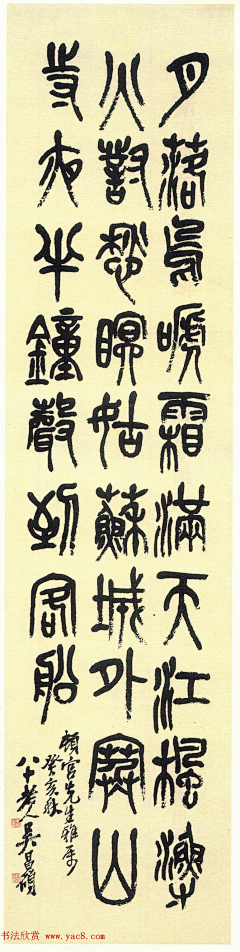 月落烏嗁霜滿天江楓漁
火對愁眠姑蘇城外寒山
寺夜半鐘聲到客船
先生雅屬
癸亥秋
八十老人吳昌碩
书法欣赏 www.yac8.com